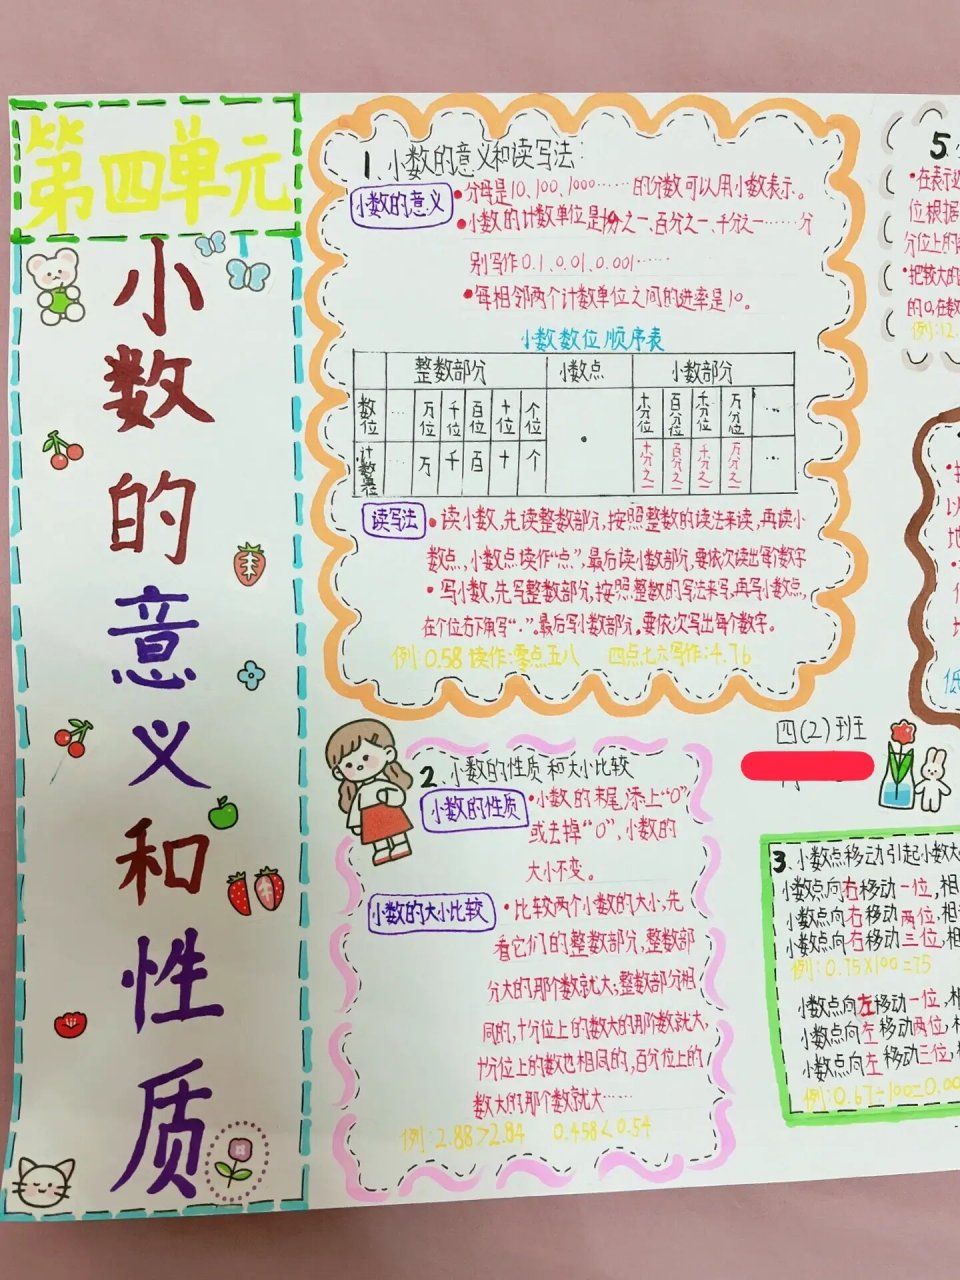 第四单元
小数的意义和性质
1、小数的意义和读写法:
小数的意义
•分母是10、100、1000……的分数可以用小数表示。
•小数的计数单位是十分之一、百分之一、千分之一……分
别写作0.1、0.01、0.001……
•每相邻两个计数单位之间的进率是10。
小数数位顺序表
整数部分 小数点 小数部分
数位 … 万位 千位 百位 十位 个位 · 十分位 百分位 千分位 万分位 …
计数单位 … 万 千 百 十 个 十分之一 百分之一 千分之一 万分之一 …
读写法
•读小数,先读整数部分,按照整数的读法来读,再读小
数点,小数点读作“点”,最后读小数部分,要依次读出每个数字
•写小数,先写整数部分,按照整数的写法来写,再写小数点,
在个位右下角写“.”。最后写小数部分。要依次写出每个数字。
例:0.58 读作:零点五八 四点七六写作:4.76
四(2)班
2、小数的性质和大小比较
小数的性质
•小数的末尾,添上“0”
或去掉“0”,小数的
大小不变。
小数的大小比较
•比较两个小数的大小,先
看它们的整数部分,整数部
分大的那个数就大;整数部分相
同的,十分位上的数大的那个数就大,
十分位上的数也相同的,百分位上的
数大的那个数就大……
例:2.88>2.84 0.458<0.54
3、小数点移动引起小数大
小数点向右移动一位,相
小数点向右移动两位,相
小数点向右移动三位,相
例:0.75×100=75
小数点向左移动一位,相
小数点向左移动两位,相
小数点向左移动三位,
例:0.67÷100=0.00
5、
•在表示近
位根据
分位上的
•把较大的
的0,在数
例:12.
以
地
低